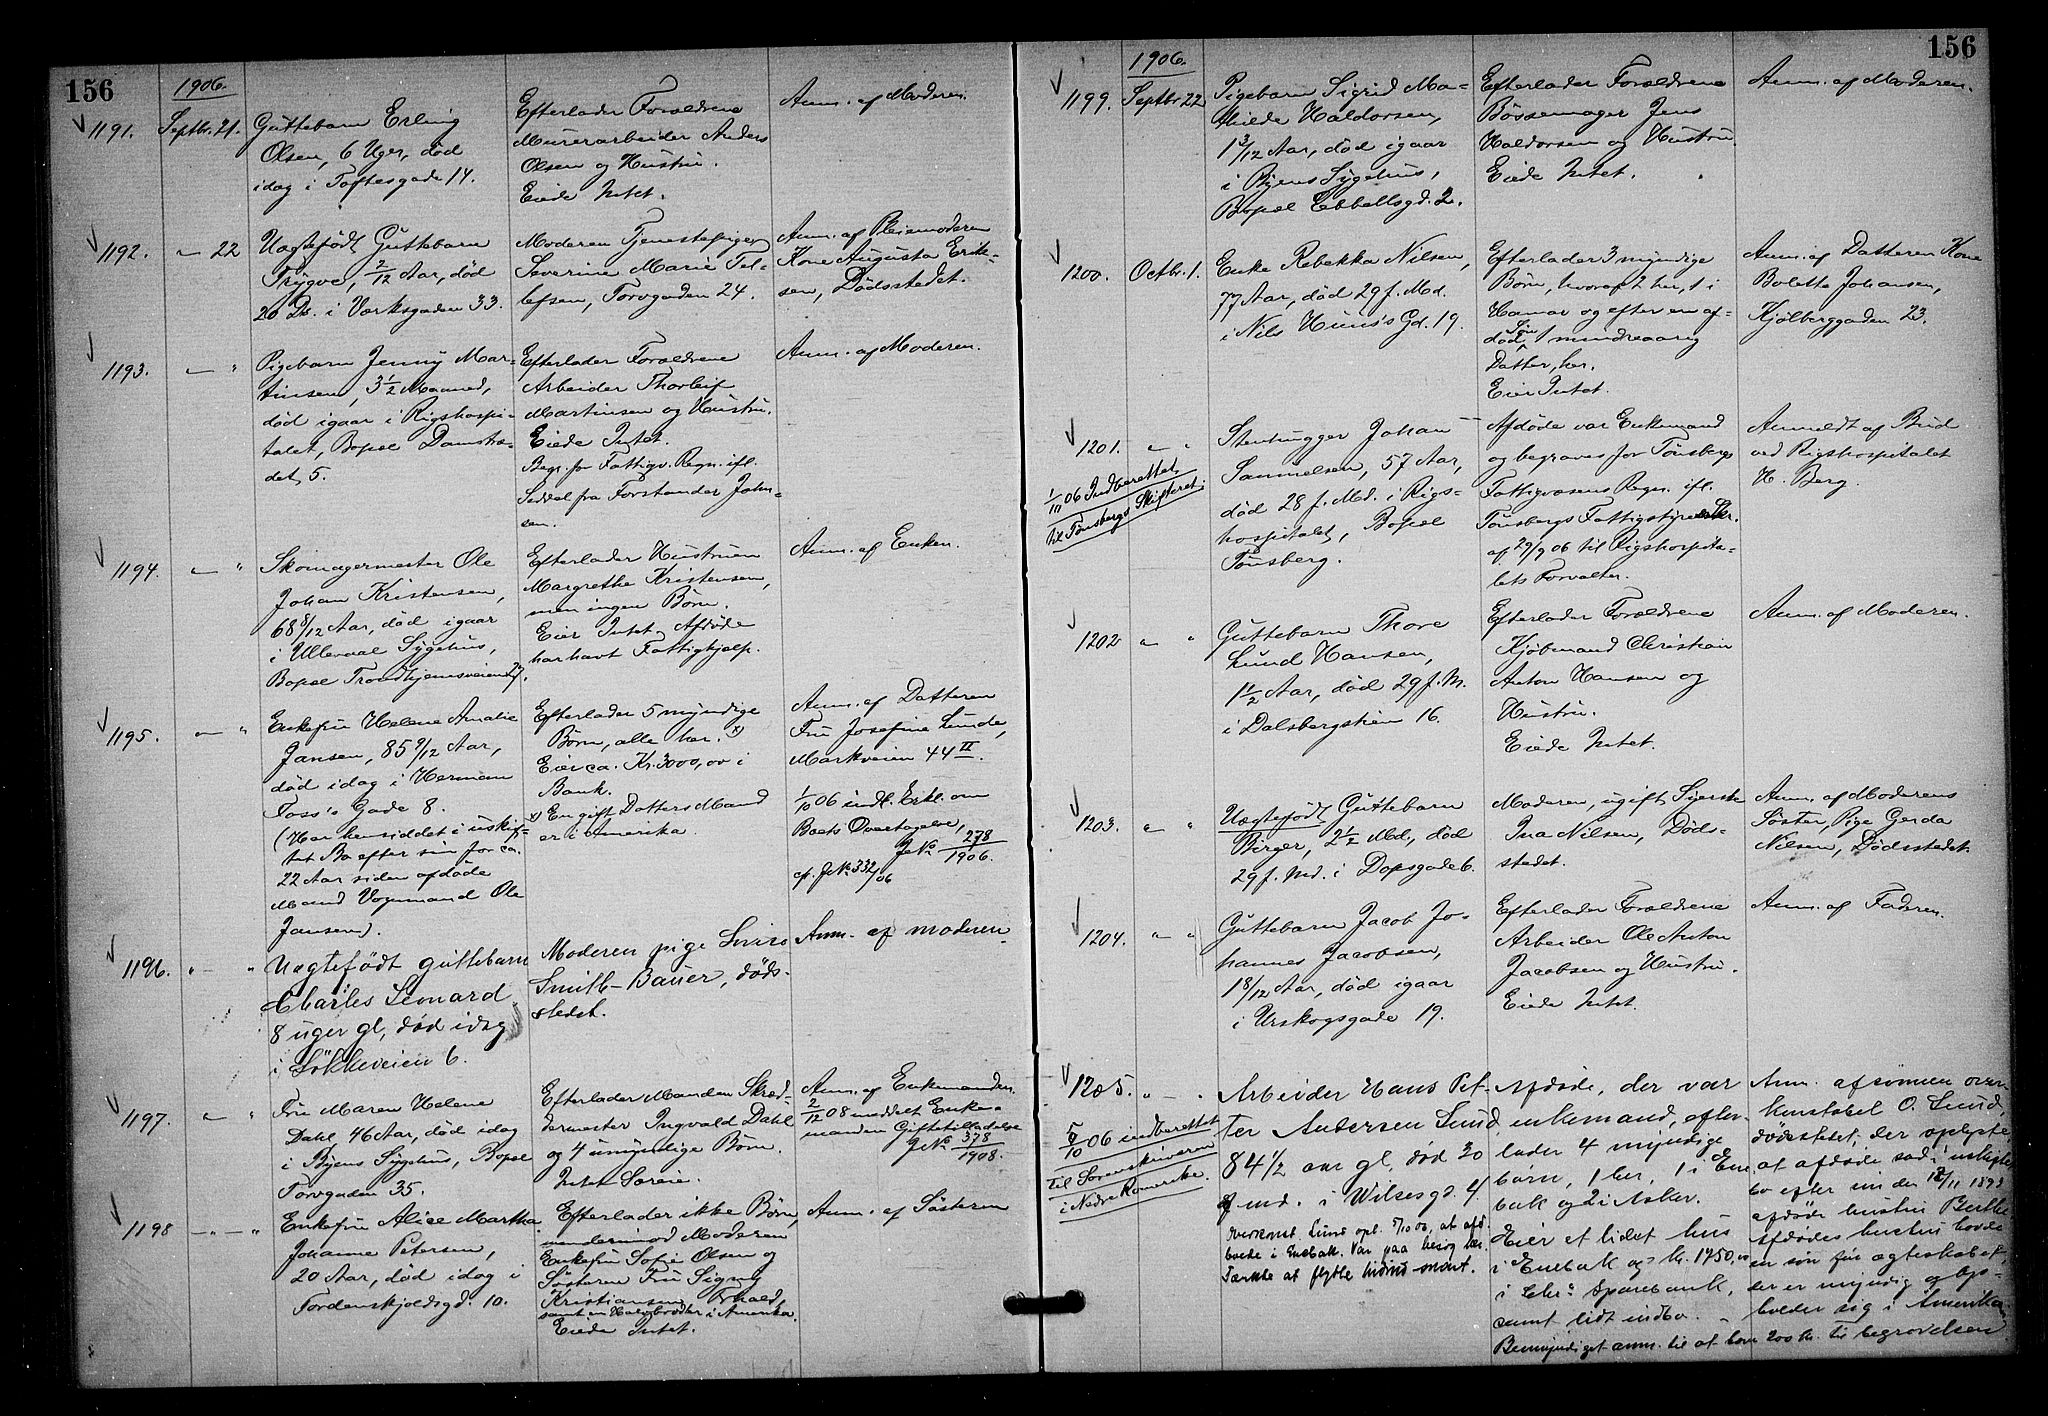 156
1906.
1191.
Septbr. 21.
Guttebarn Erling
Olsen, 6 Uger, død
idag i Toftesgade 14.
Efterlader Forældrene
Murerarbeider Anders
Olsen og Hustru.
Eiede Intet.
Anm. af Moderen.
1192.
— 22
Uægtefødt Guttebarn
Trygve, 2/12 Aar, død
20 Ds. i Værksgaden 33.
Moderen Tjenestepige
Severine Marie Tel-
lefsen, Torvgaden 24.
Anm. af Pleiemoderen
Kone Augusta Erik-
sen, Dødsstedet.
1193.
— "
Pigebarn Jenny Mar-
tinsen, 3 1/2 Maaned,
død igaar i Rigshospi-
talet, Bopæl Damstræ-
det 5.
Efterlader Forældrene
Arbeider Thorleif
Martinsen og Hustru.
Eiede Intet.
Begr. for Fattigv. Regn. ifl.
Seddel fra Forstander John-
sen.
Anm. af Moderen.
1194.
— "
Skomagermester Ole
Johan Kristensen,
68 8/12 Aar, død igaar
i Ullevaal Sygehus,
Bopæl Trondhjemsveien 27.
Efterlader Hustruen
Margrethe Kristensen,
men ingen Børn.
Eier Intet, Afdøde
har havt Fattighjælp.
Anm. af Enken.
1195.
— "
Enkefru Helene Amalie
Jansen, 85 9/12 Aar,
død idag i Herman
Foss's Gade 8.
(Har hensiddet i uskif-
tet Bo efter sin for ca.
22 Aar siden afdøde
Mand Vognmand Ole
Jansen).
Efterlader 5 myndige
Børn, alle her. x)
Eier ca. Kr. 3000,00 i
Bank.
x) En gift Datters Mand
er i Amerika.
Anm. af Datteren
Fru Josefine Lunde,
Markveien 44 II.
1/10 06 indl. Erkl. om
Boets Overtagelse,
JNo 278/1906.
cfr. JNo 332/06
1196.
" — "
Uægtefødt guttebarn
Charles Leonard
8 uger gl, død idag
i Løkkeveien 6.
Moderen pige
Smith-Bauer, døds-
stedet.
Anm. af moderen.
1197.
— "
Fru Maren Helene
Dahl, 46 Aar, død idag
i Byens Sygehus, Bopæl
Torvgaden 35.
Efterlader Manden Skræd-
dermester Ingvald Dahl
og 4 umyndige Børn.
Intet Særeie.
Anm. af Enkemanden.
2/12 08 meddelt Enke-
manden Giftetilladelse
JNo 378/1908.
1198
— " — "
Enkefru Alice Martha
Johanne Petersen,
20 Aar, død idag i
Tordenskjoldsgd. 10.
Efterlader ikke Børn,
mendermod Moderen
Enkefru Sofie Olsen og
Søsteren Fru Signy
Kristiansen,
samt en Halvbroder i Amerika.
Eiede Intet.
Anm. af Søsteren
156
1906.
1199.
Septbr. 22
Pigebarn Sigrid Ma-
thilde Haldorsen,
1 3/12 Aar, død igaar
i Byens Sygehus,
Bopæl Ebbellsgd. 2.
Efterlader Forældrene
Bøssemager Jens
Haldorsen og Hustru.
Eiede Intet.
Anm. af Moderen.
1200.
Octbr. 1.
Enke Rebekka Nilsen,
77 Aar, død 29 f. Md.
i Nils Huus's Gd. 19.
Efterlader 3 myndige
Børn, hvoraf 2 her, 1 i
Hamar og efter en af-
død Søn 1 mindreaarig
Datter, her.
Eier Intet.
Anm. af Datteren Kone
Bolette Johansen,
Kjølberggaden 23.
1201.
" "
1/10 06 Indberettet
til Tønsbergs Skifteret.
Stenhugger Johan
Samuelsen, 57 Aar,
død 28 f. Md. i Rigs-
hospitalet, Bopæl
Tønsberg.
Afdøde var Enkemand
og begraves for Tønsbergs
Fattigvæsens Regn. ifl.
Tønsbergs Fattigstyres Skr.
af 29/9 06 til Rigshospita-
lets Forvalter.
Anmeldt af Bud
ved Rigshospitalet
H. Berg.
1202
" "
Guttebarn Thore
Lund Hansen,
1 1/2 Aar, død 29 f. M.
i Dalsbergstien 16.
Efterlader Forældrene
Kjøbmand Christian
Anton Hansen og
Hustru.
Eiede Intet.
Anm. af Moderen.
1203.
" "
Uægtefødt Guttebarn
Birger, 2 1/2 Md., død
29 f. Md. i Dopsgade 6.
Moderen, ugift Syerske
Ina Nilsen, Døds-
stedet.
Anm. af Moderens
Søster, Pige Gerda
Nilsen, Dødsstedet.
1204.
" "
Guttebarn Jacob Jo-
hannes Jacobsen,
1 8/12 Aar, død igaar
i Urskogsgade 19.
Efterlader Forældrene
Arbeider Ole Anton
Jacobsen og Hustru.
Eiede Intet.
Anm. af Faderen.
1205.
" - "
5/10 06 indberettet
til Sorenskriveren
i Nedre Romerike.
Arbeider Hans Pet-
ter Andersen Lund,
84 1/2 aar gl, død 30
f md. i Wilsesgd. 4.
Overkonst. Lund opl. 5/10 06, at afd.
boede i Enebak. Var paa besøg her.
Tænkte at flytte hid
Afdøde, der var
enkemand, efter-
lader 4 myndige
børn, 1 her, 1 i Ene
bak og 2 i Asker.
Eier et lidet hus
i Enebak og kr. 1750,00
i Chr.a Sparebank,
samt lidt indbo.
Bemyndiget anm. til at hæve 200 kr. til begravelsen
Anm. af sønnen over-
konstabel O. Lund,
dødsstedet, der oplyste,
at afdøde sad i uskiftet
bo efter sin den 12/11 1893
afdøde hustru Berthe
Afdødes hustru havde
en søn før ægteskabet,
der er myndig og op-
holder sig i Amerika